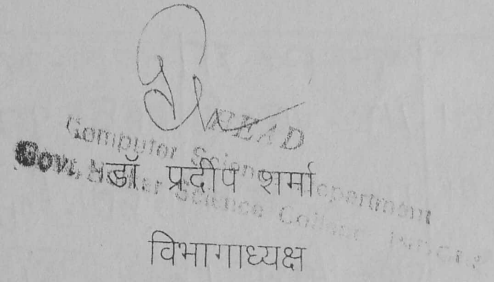 HEAD
Computer Science Department
Govt. Science College
डॉ. प्रदीप शर्मा
विभागाध्यक्ष